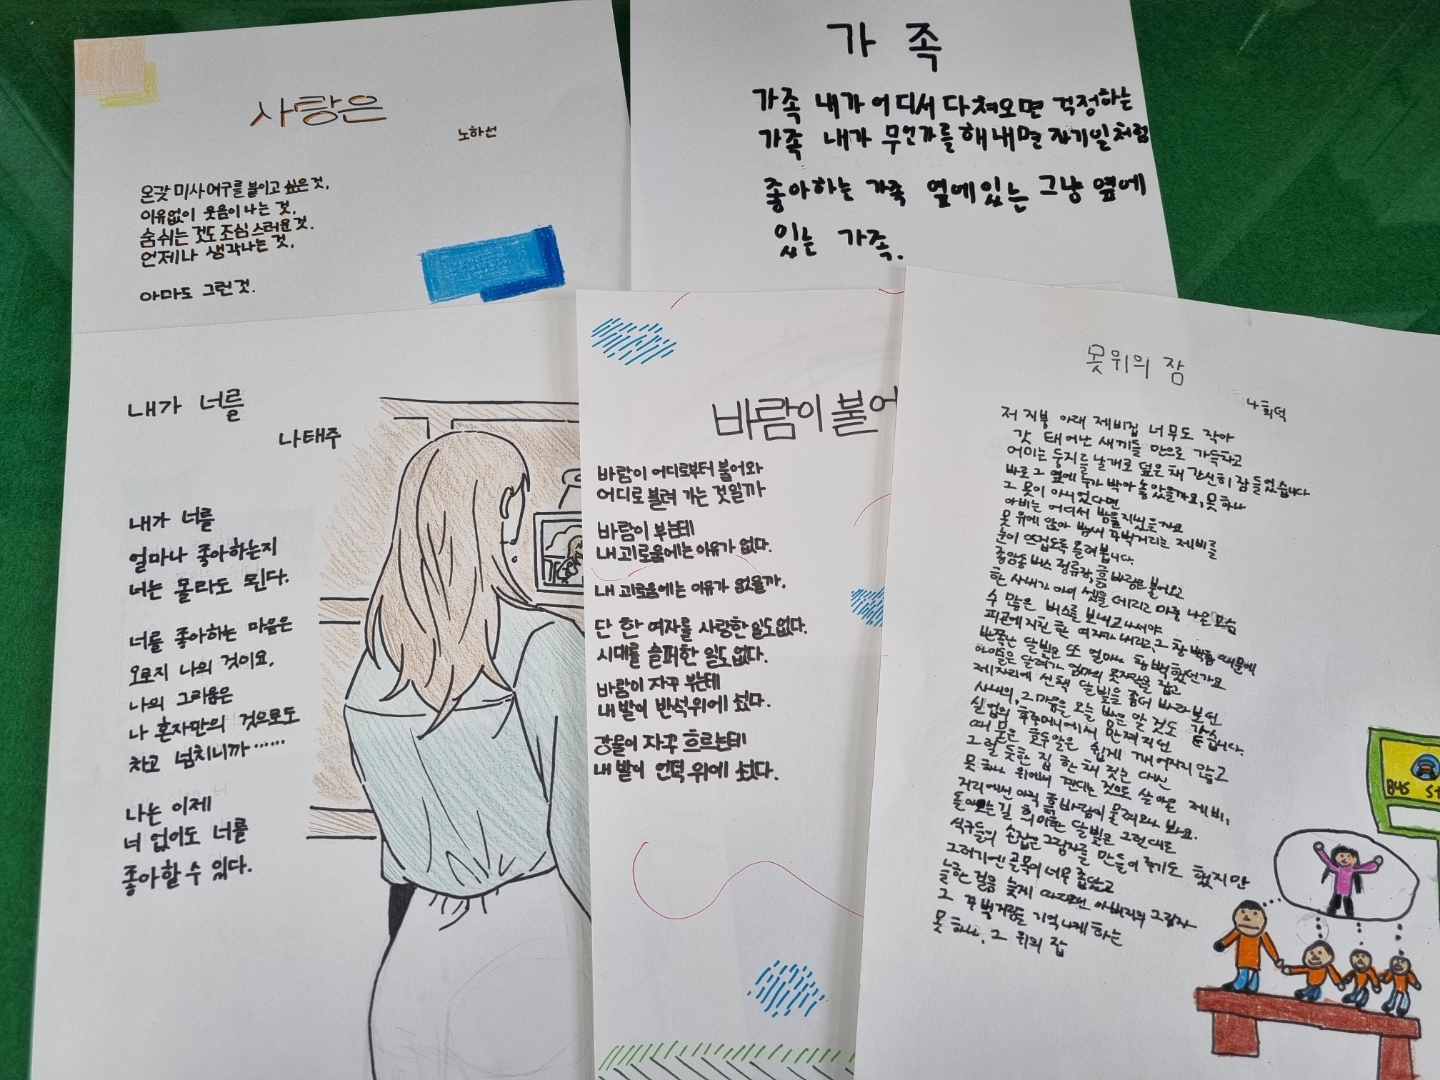 사랑은
노하선
온갖 미사여구를 붙이고 싶은 것,
이유없이 웃음이 나는 것,
숨쉬는 것도 조심스러운 것.
언제나 생각나는 것,
아마도 그런 것.
가족
가족 내가 어디서 다쳐오면 걱정하는
가족 내가 무언가를 해내면 자기일처럼
좋아하는 가족 옆에 있는 그냥 옆에
있는 가족.
내가 너를
나태주
내가 너를
얼마나 좋아하는지
너는 몰라도 된다.
너를 좋아하는 마음은
오로지 나의 것이요,
나의 그리움은
나 혼자만의 것으로도
차고 넘치니까……
나는 이제
너 없이도 너를
좋아할 수 있다.
바람이 불어
바람이 어디로부터 불어와
어디로 불려 가는 것일까
바람이 부는데
내 괴로움에는 이유가 없다.
내 괴로움에는 이유가 없을까.
단 한 여자를 사랑한 일도 없다.
시대를 슬퍼한 일도 없다.
바람이 자꾸 부는데
내 발이 반석 위에 섰다.
강물이 자꾸 흐르는데
내 발이 언덕 위에 섰다.
못 위의 잠
나희덕
저 지붕 아래 제비집 너무도 작아
갓 태어난 새끼들 만으로 가득차고
어미는 둥지를 날개로 덮은 채 간신히 잠들었습니다
바로 그 옆에 누가 박아 놓았을까요, 못 하나
그 못이 아니었다면
아비는 어디서 밤을 지냈을까요
못 위에 앉아 밤새 꾸벅거리는 제비를
눈이 뜨겁도록 올려봅니다.
종암동 버스 정류장, 흙바람은 불어오고
한 사내가 아이 셋을 데리고 마중 나온 모습
수 많은 버스를 보내고 나서야
피곤에 지친 한 여자가 내리고, 그 창백함 때문에
반쪽난 달빛은 또 얼마나 창백했던가요
아이들은 달려가 엄마의 옷자락을 잡고
제자리에 선 채 달빛을 좀더 바라보던
사내의, 그 마음을 오늘 밤은 알 것도 같습니다.
실업의 호주머니에서 만져지던
때 묻은 호두알은 쉽게 깨어지지 않고
그럴 듯한 집 한 채 짓는 대신
못 하나 위에서 견디는 것으로 살아온 제비,
거리에선 아직 흙바람이 몰려오나 봐요.
돌아오는 길 희미한 달빛은 그런대로
식구들의 손잡은 그림자를 만들어 주기도 했지만
그러기엔 골목이 너무 좁았고
늘 한 걸음 늦게 따라오던 아버지의 그림자
그 꾸벅거림을 기억나게 하는
못 하나, 그 위의 잠
BUS